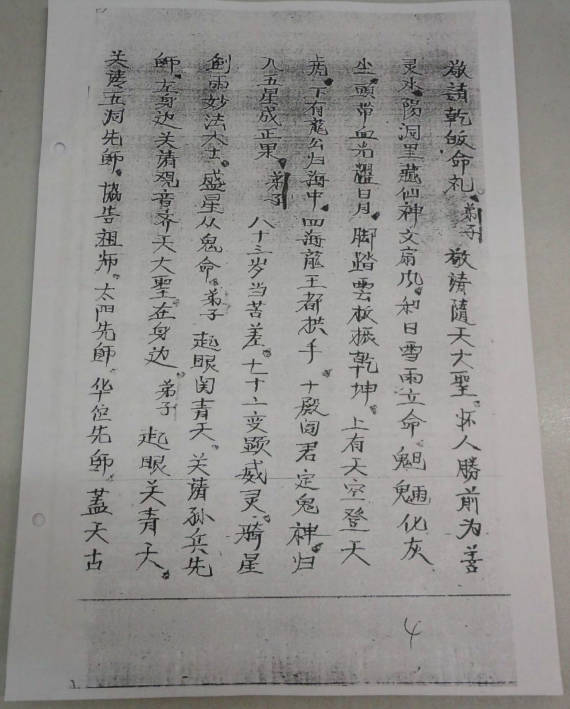 敬請乾皈命礼。弟子 敬请隨天大聖。怀人勝前为善
灵水。陽洞里藏仙神文扇風。和日雪雨立命。魁魎化灰
尘。頭带血光耀日月。脚踏雲板振乾坤。上有天空登天
虎。下有龍公归海中。四海龍王都拱手。十殿阎君定鬼神。归
八五星成正果。弟子 八十三岁当苦差。七十二变顕威灵。骑星
劍雨妙法大士。盛星从鬼命。弟子 起眼関青天。关请孙兵先
師。左身边关请观音齐天大聖在身边。弟子 起眼关青天。
关请五洞先師。協告祖师。太阳先師。华位先師。蓋天古
4